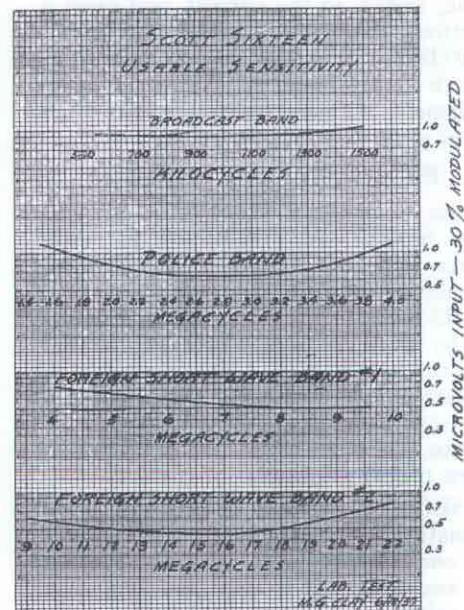 SCOTT SIXTEEN
USABLE SENSITIVITY
BROADCAST BAND
1.0
0.7
550 700 900 1100 1300 1500
KILOCYCLES
POLICE BAND
1.0
0.7
0.5
1.8 2.0 2.2 2.4 2.6 2.8 3.0 3.2 3.4 3.6 3.8 4.0
MEGACYCLES
FOREIGN SHORT WAVE BAND #1
1.0
0.7
0.5
0.3
4 5 6 7 8 9 10
MEGACYCLES
FOREIGN SHORT WAVE BAND #2
1.0
0.7
0.5
0.3
9 10 11 12 13 14 15 16 17 18 19 20 21 22
MEGACYCLES
LAB. TEST
M.G. CLAY
MICROVOLTS INPUT — 30% MODULATED